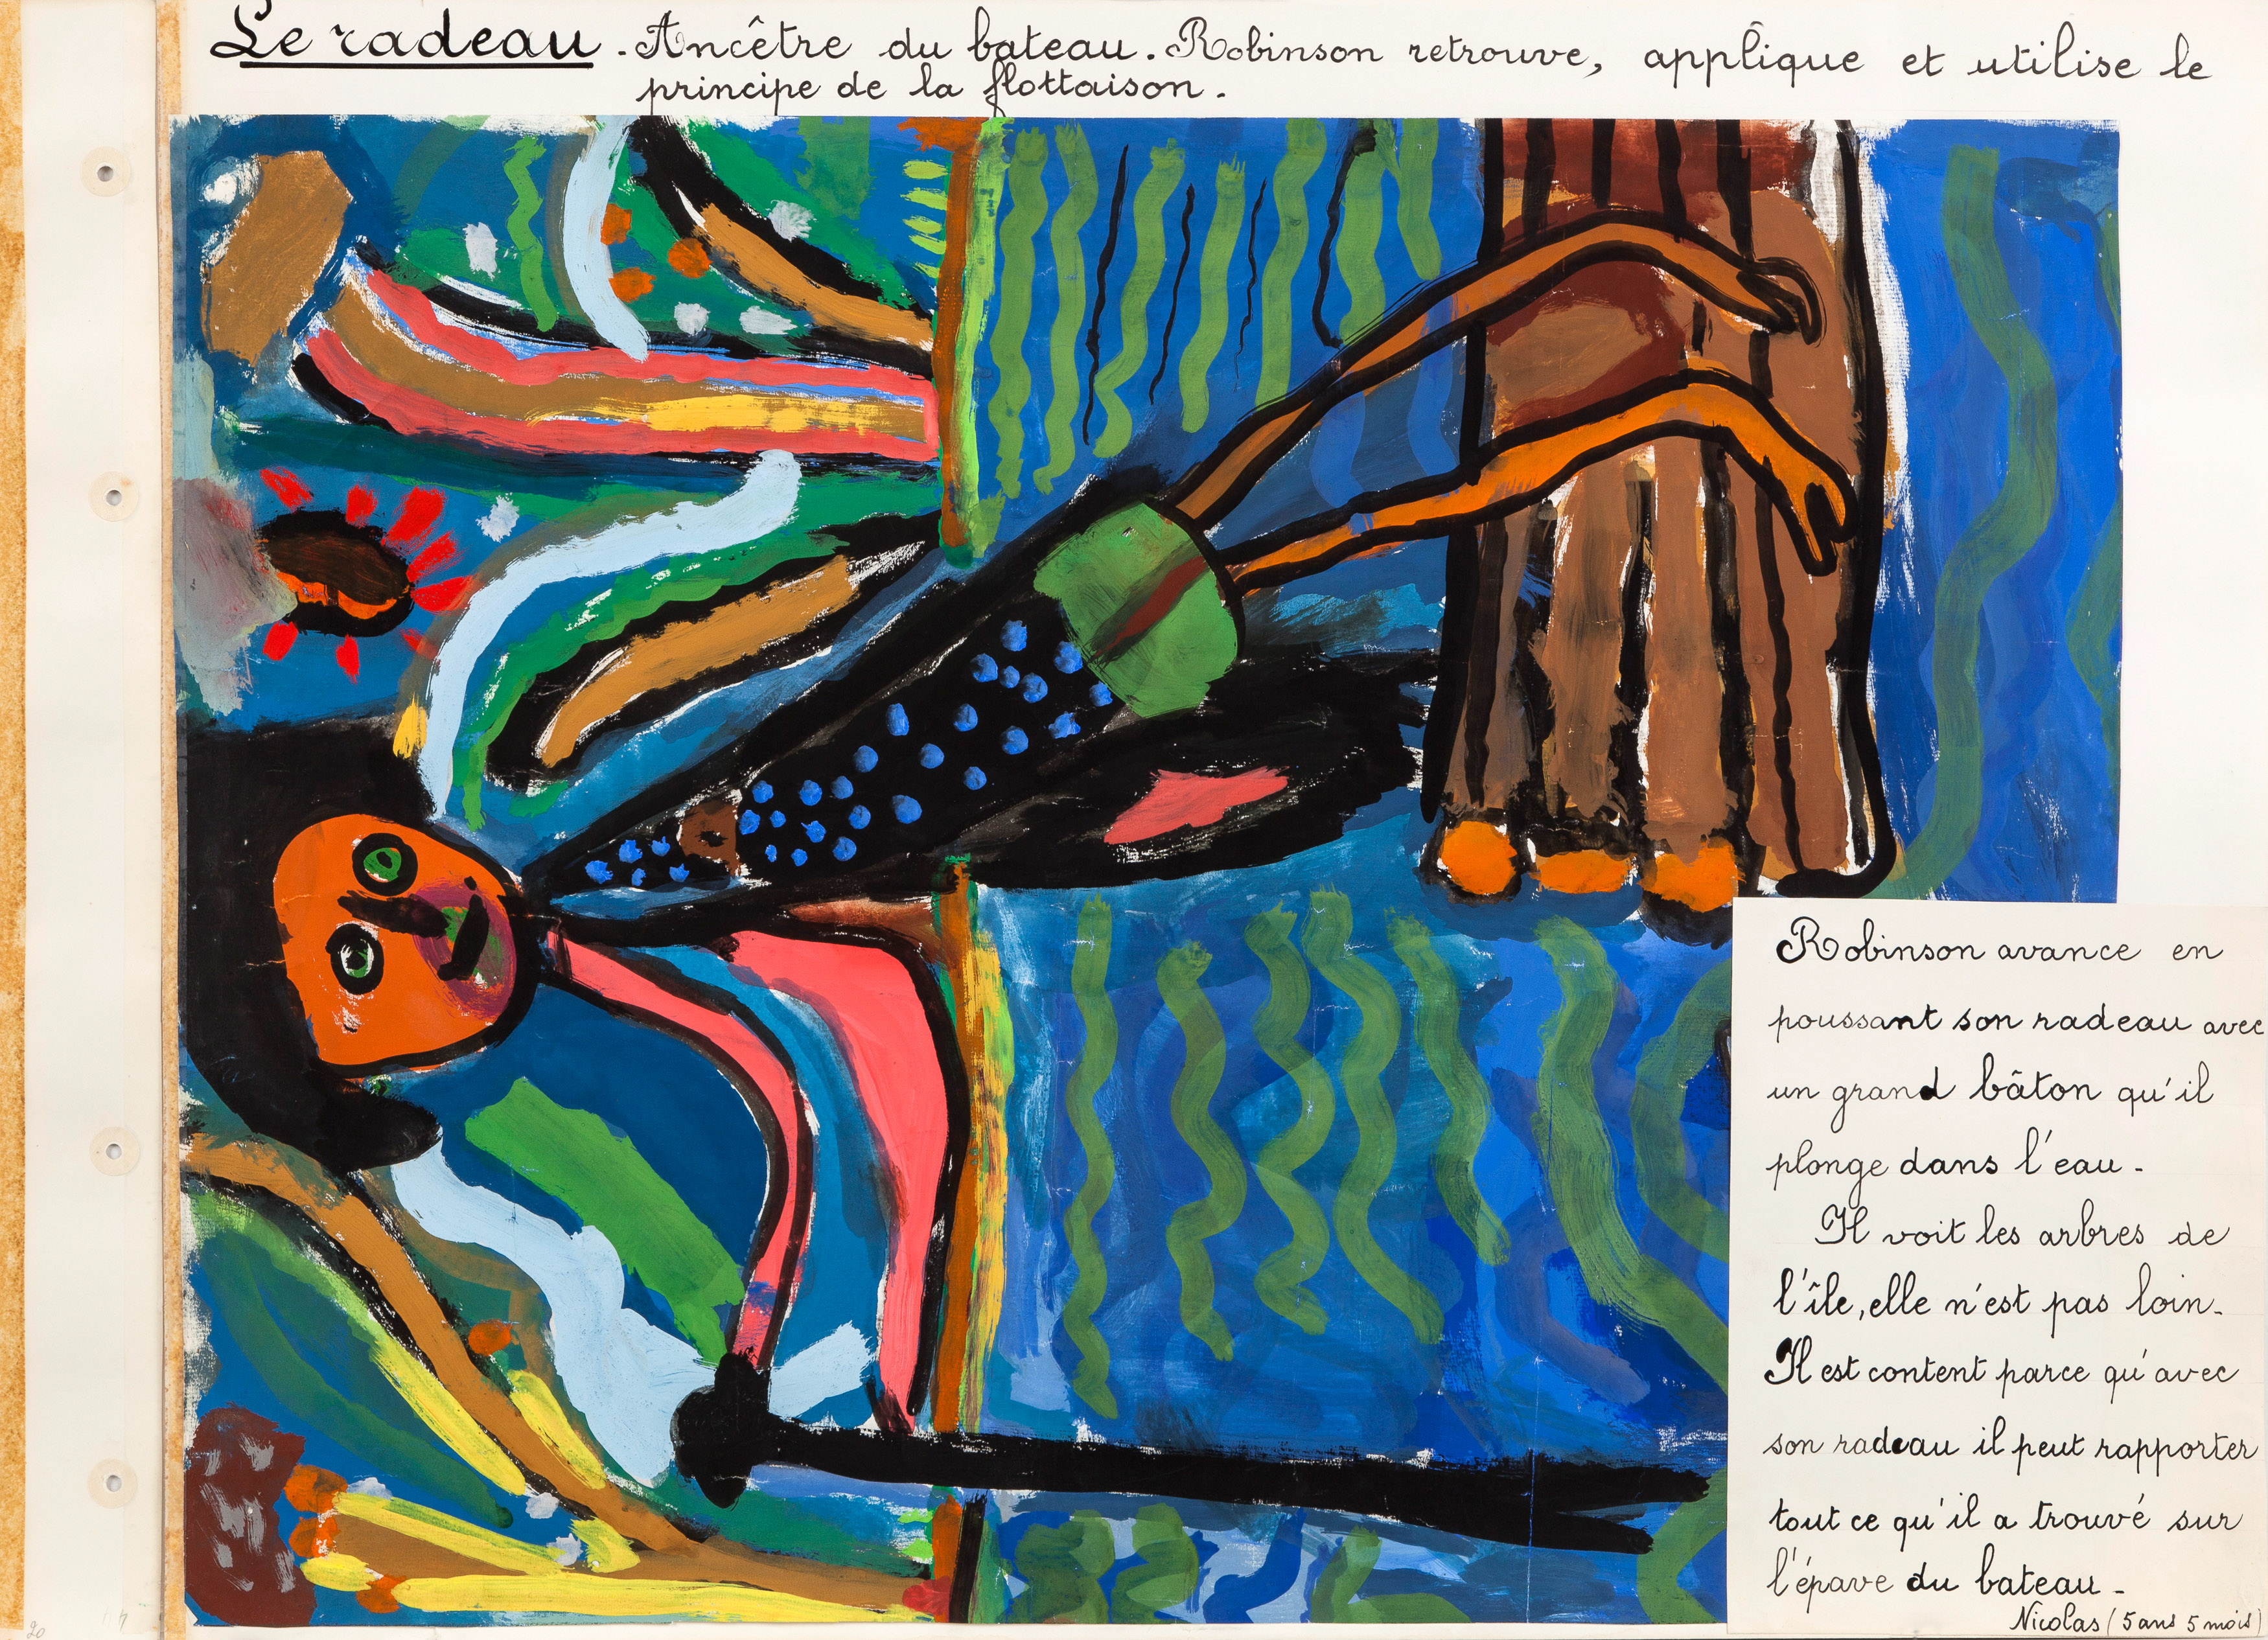 Le radeau. Ancêtre du bateau. Robinson retrouve, applique et utilise le
principe de la flottaison.
Robinson avance en
poussant son radeau avec
un grand bâton qu'il
plonge dans l'eau.
Il voit les arbres de
l'île, elle n'est pas loin.
Il est content parce qu'avec
son radeau il peut rapporter
tout ce qu'il a trouvé sur
l'épave du bateau.
Nicolas (5 ans 5 mois)
20